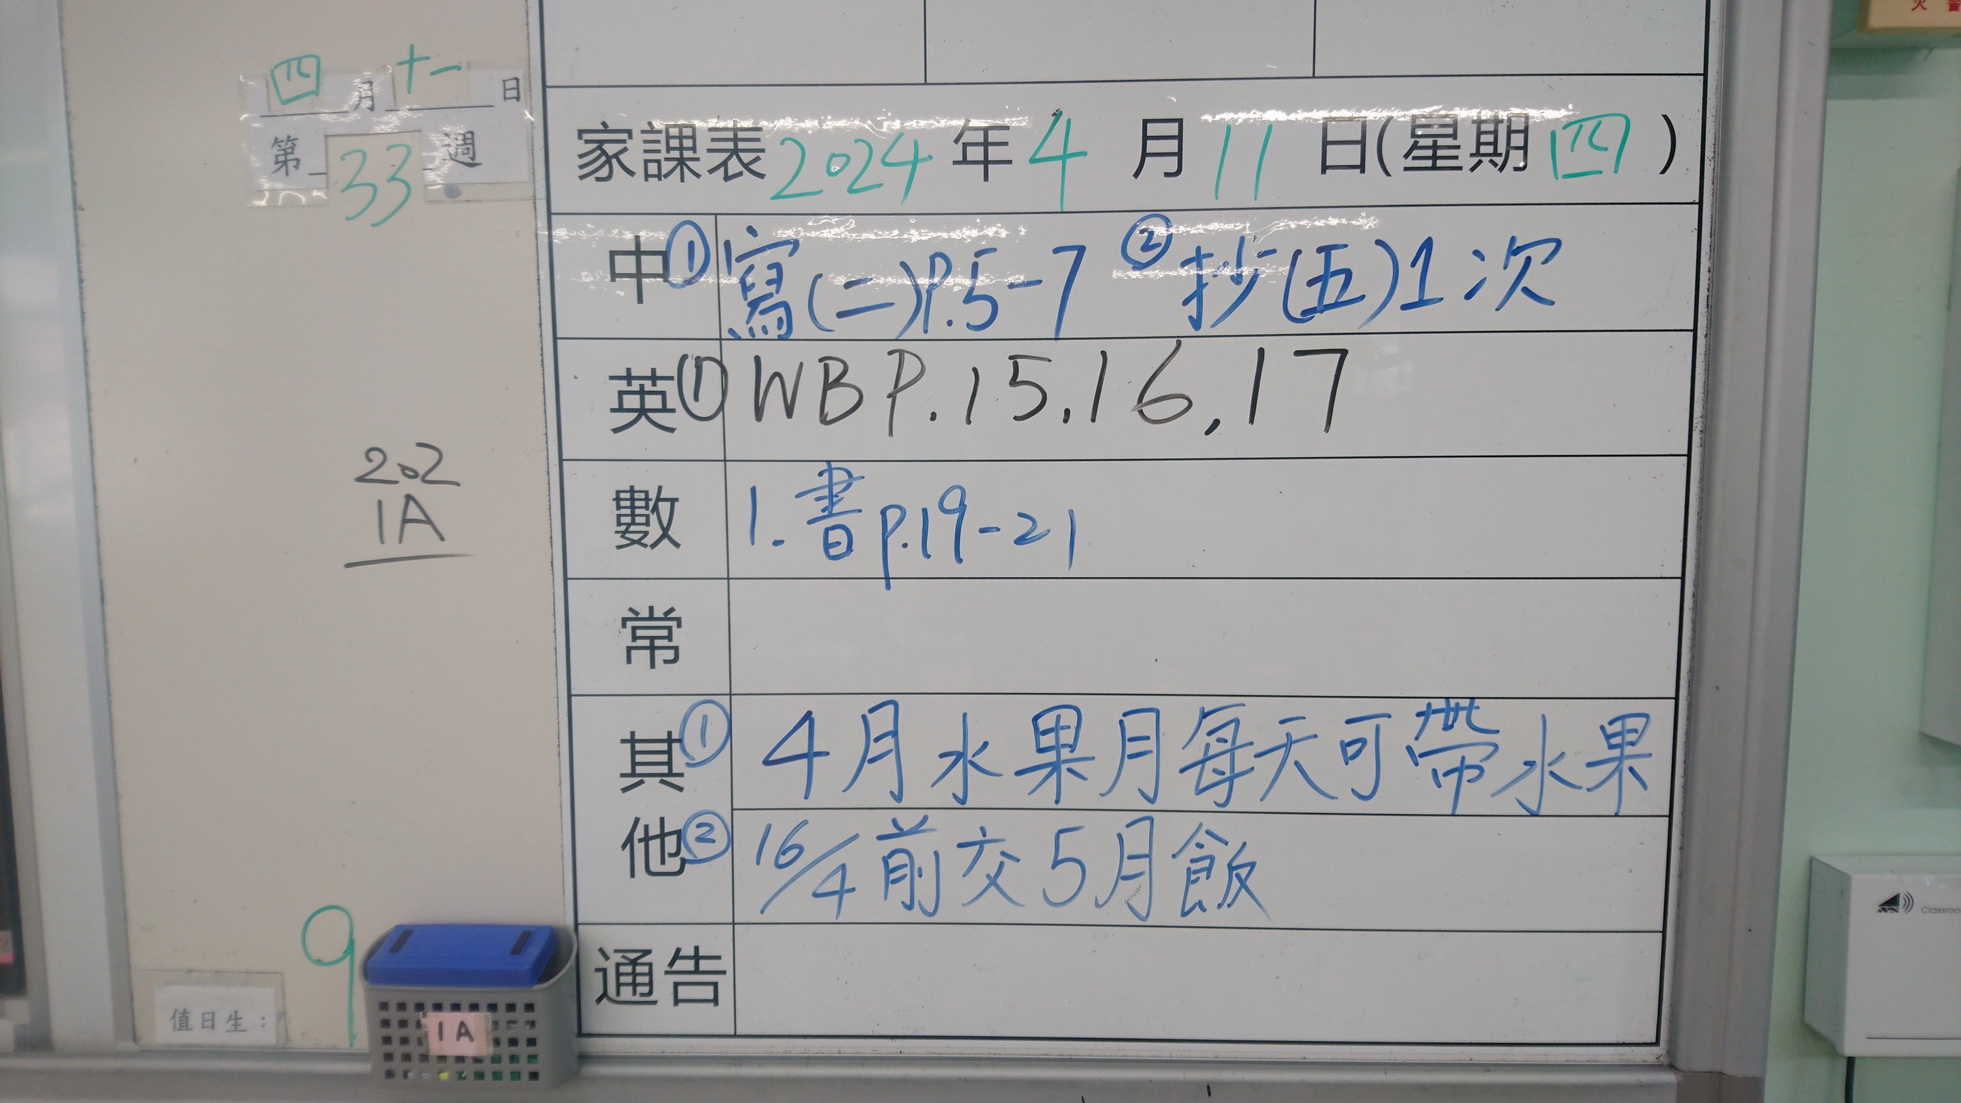 四月十一日
第33週
家課表2024年4月11日(星期四)
中①寫(二)P.5-7 ②抄(五)1次
英①WB P.15.16,17
202
1A
數 1.書p.19-21
常
其他
①4月水果月每天可帶水果
②16/4前交5月飯
通告
9
值日生：
1A